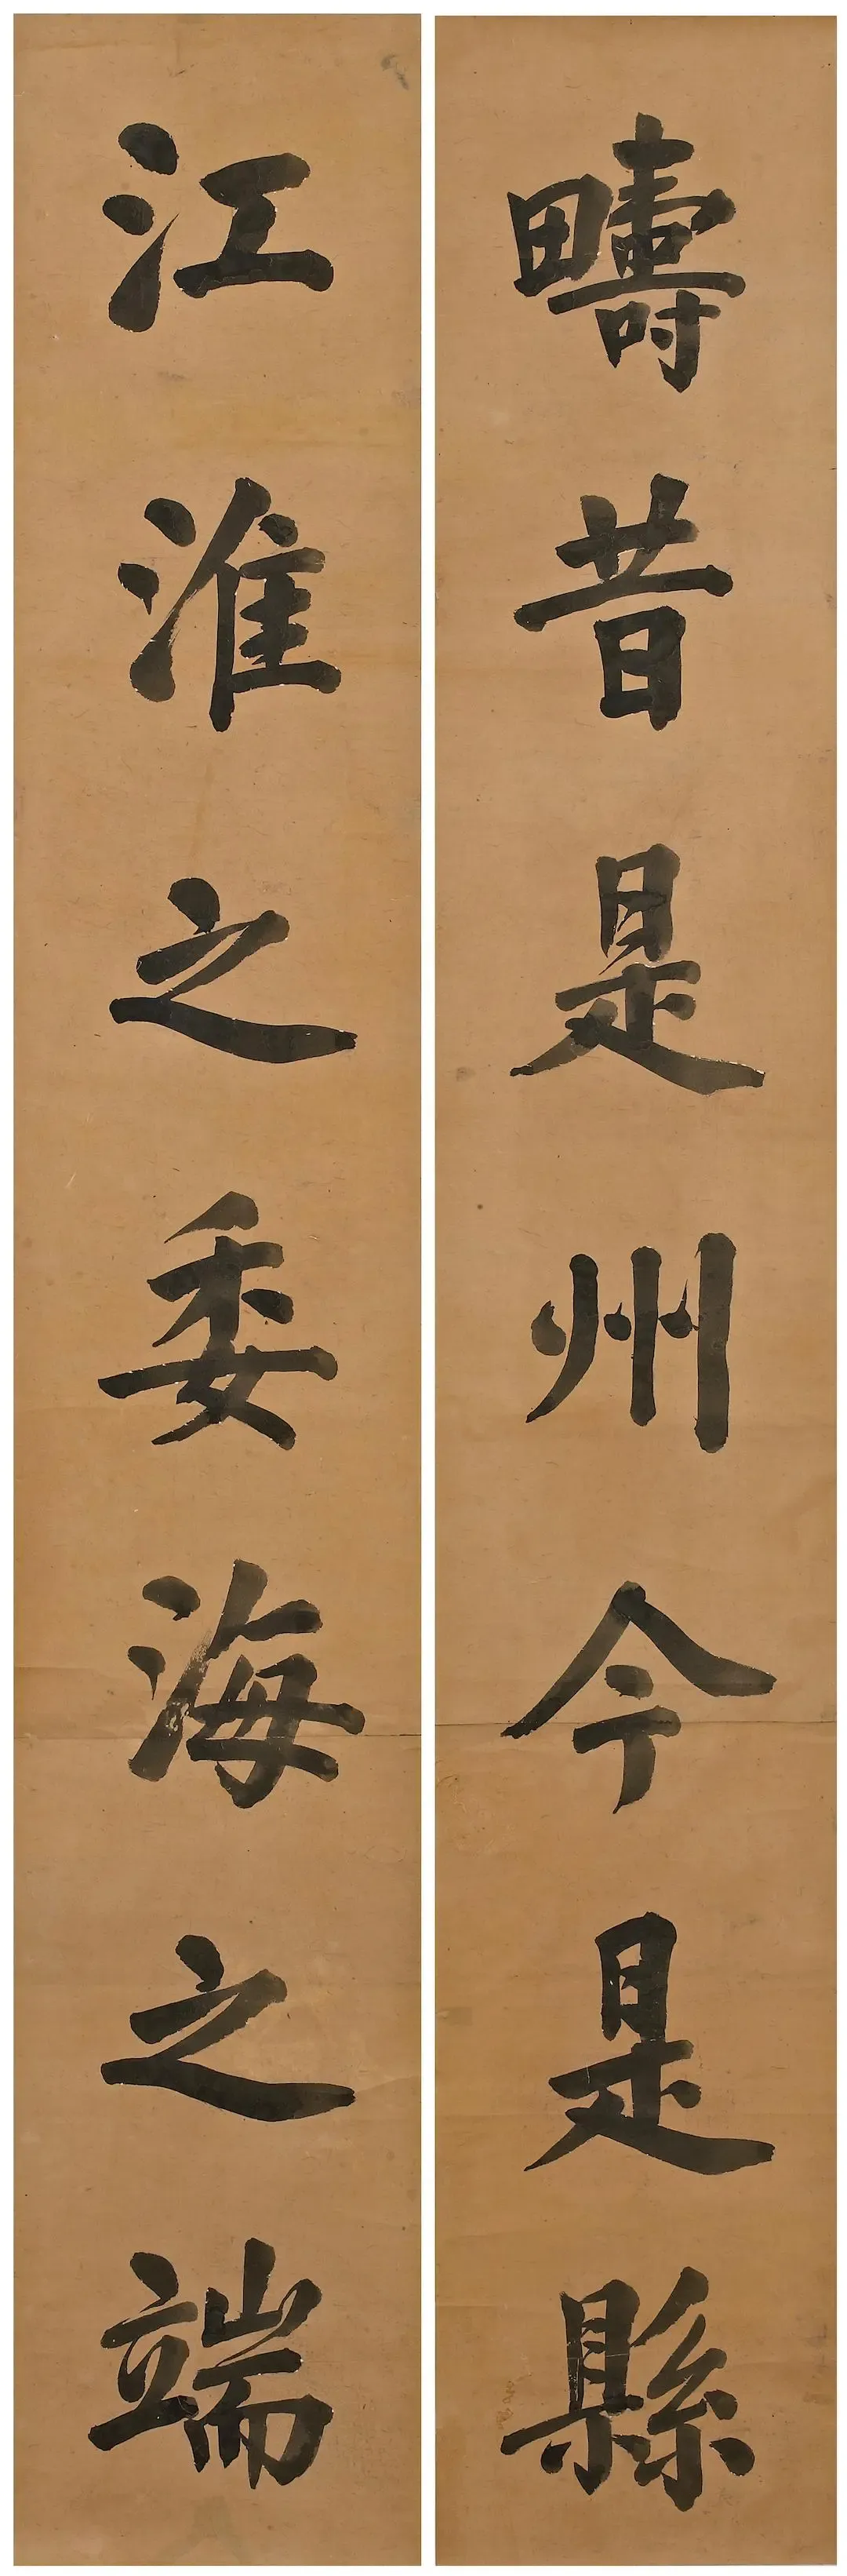 疇昔是州今是縣
江淮之委海之端